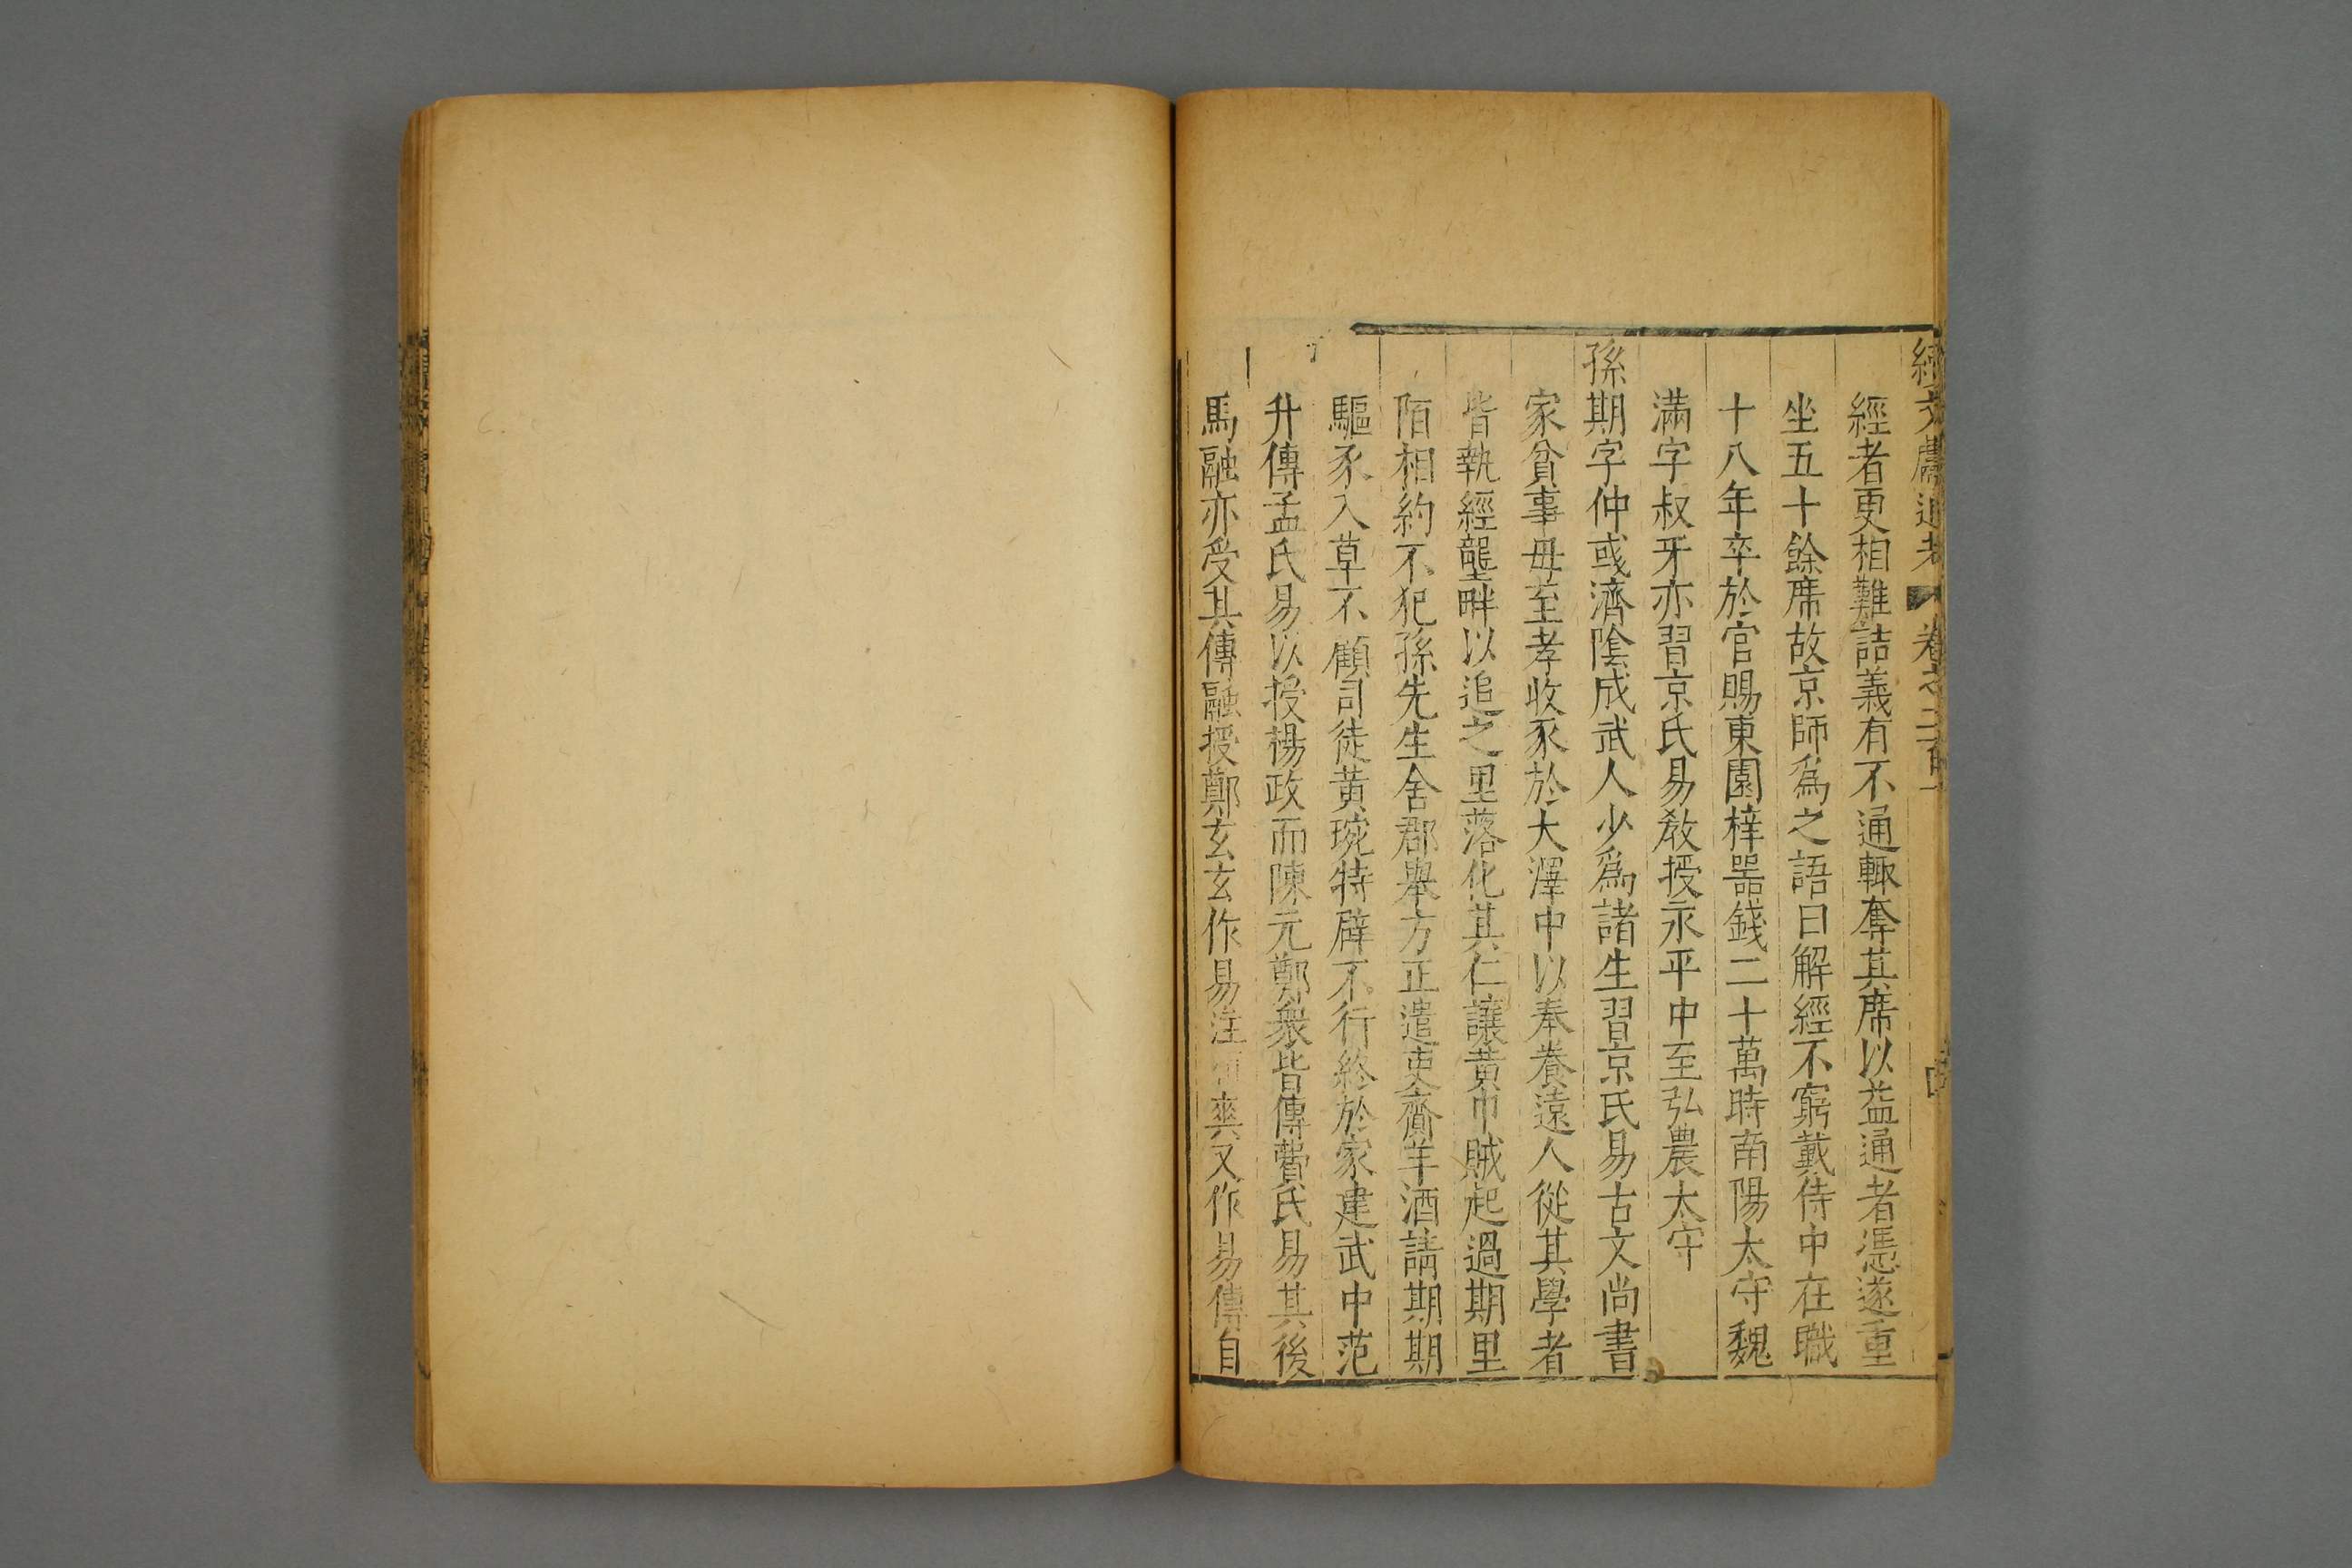 經者更相難詰義有不通輒奪其席以益通者憑遂重
坐五十餘席故京師爲之語曰解經不窮戴侍中在職
十八年卒於官賜東園梓器錢二十萬時南陽太守魏
滿字叔牙亦習京氏易教授永平中至弘農太守
孫期字仲彧濟陰成武人少爲諸生習京氏易古文尚書
家貧事母至孝收豕於大澤中以奉養遠人從其學者
皆執經壟畔以追之里落化其仁讓黃巾賊起過期里
陌相約不犯孫先生舍郡舉方正遣吏齎羊酒請期期
驅豕入草不顧司徒黃琬特辟不行終於家建武中范
升傳孟氏易以授楊政而陳元鄭衆皆傳費氏易其後
馬融亦受其傳融授鄭玄玄作易注荀爽又作易傳自